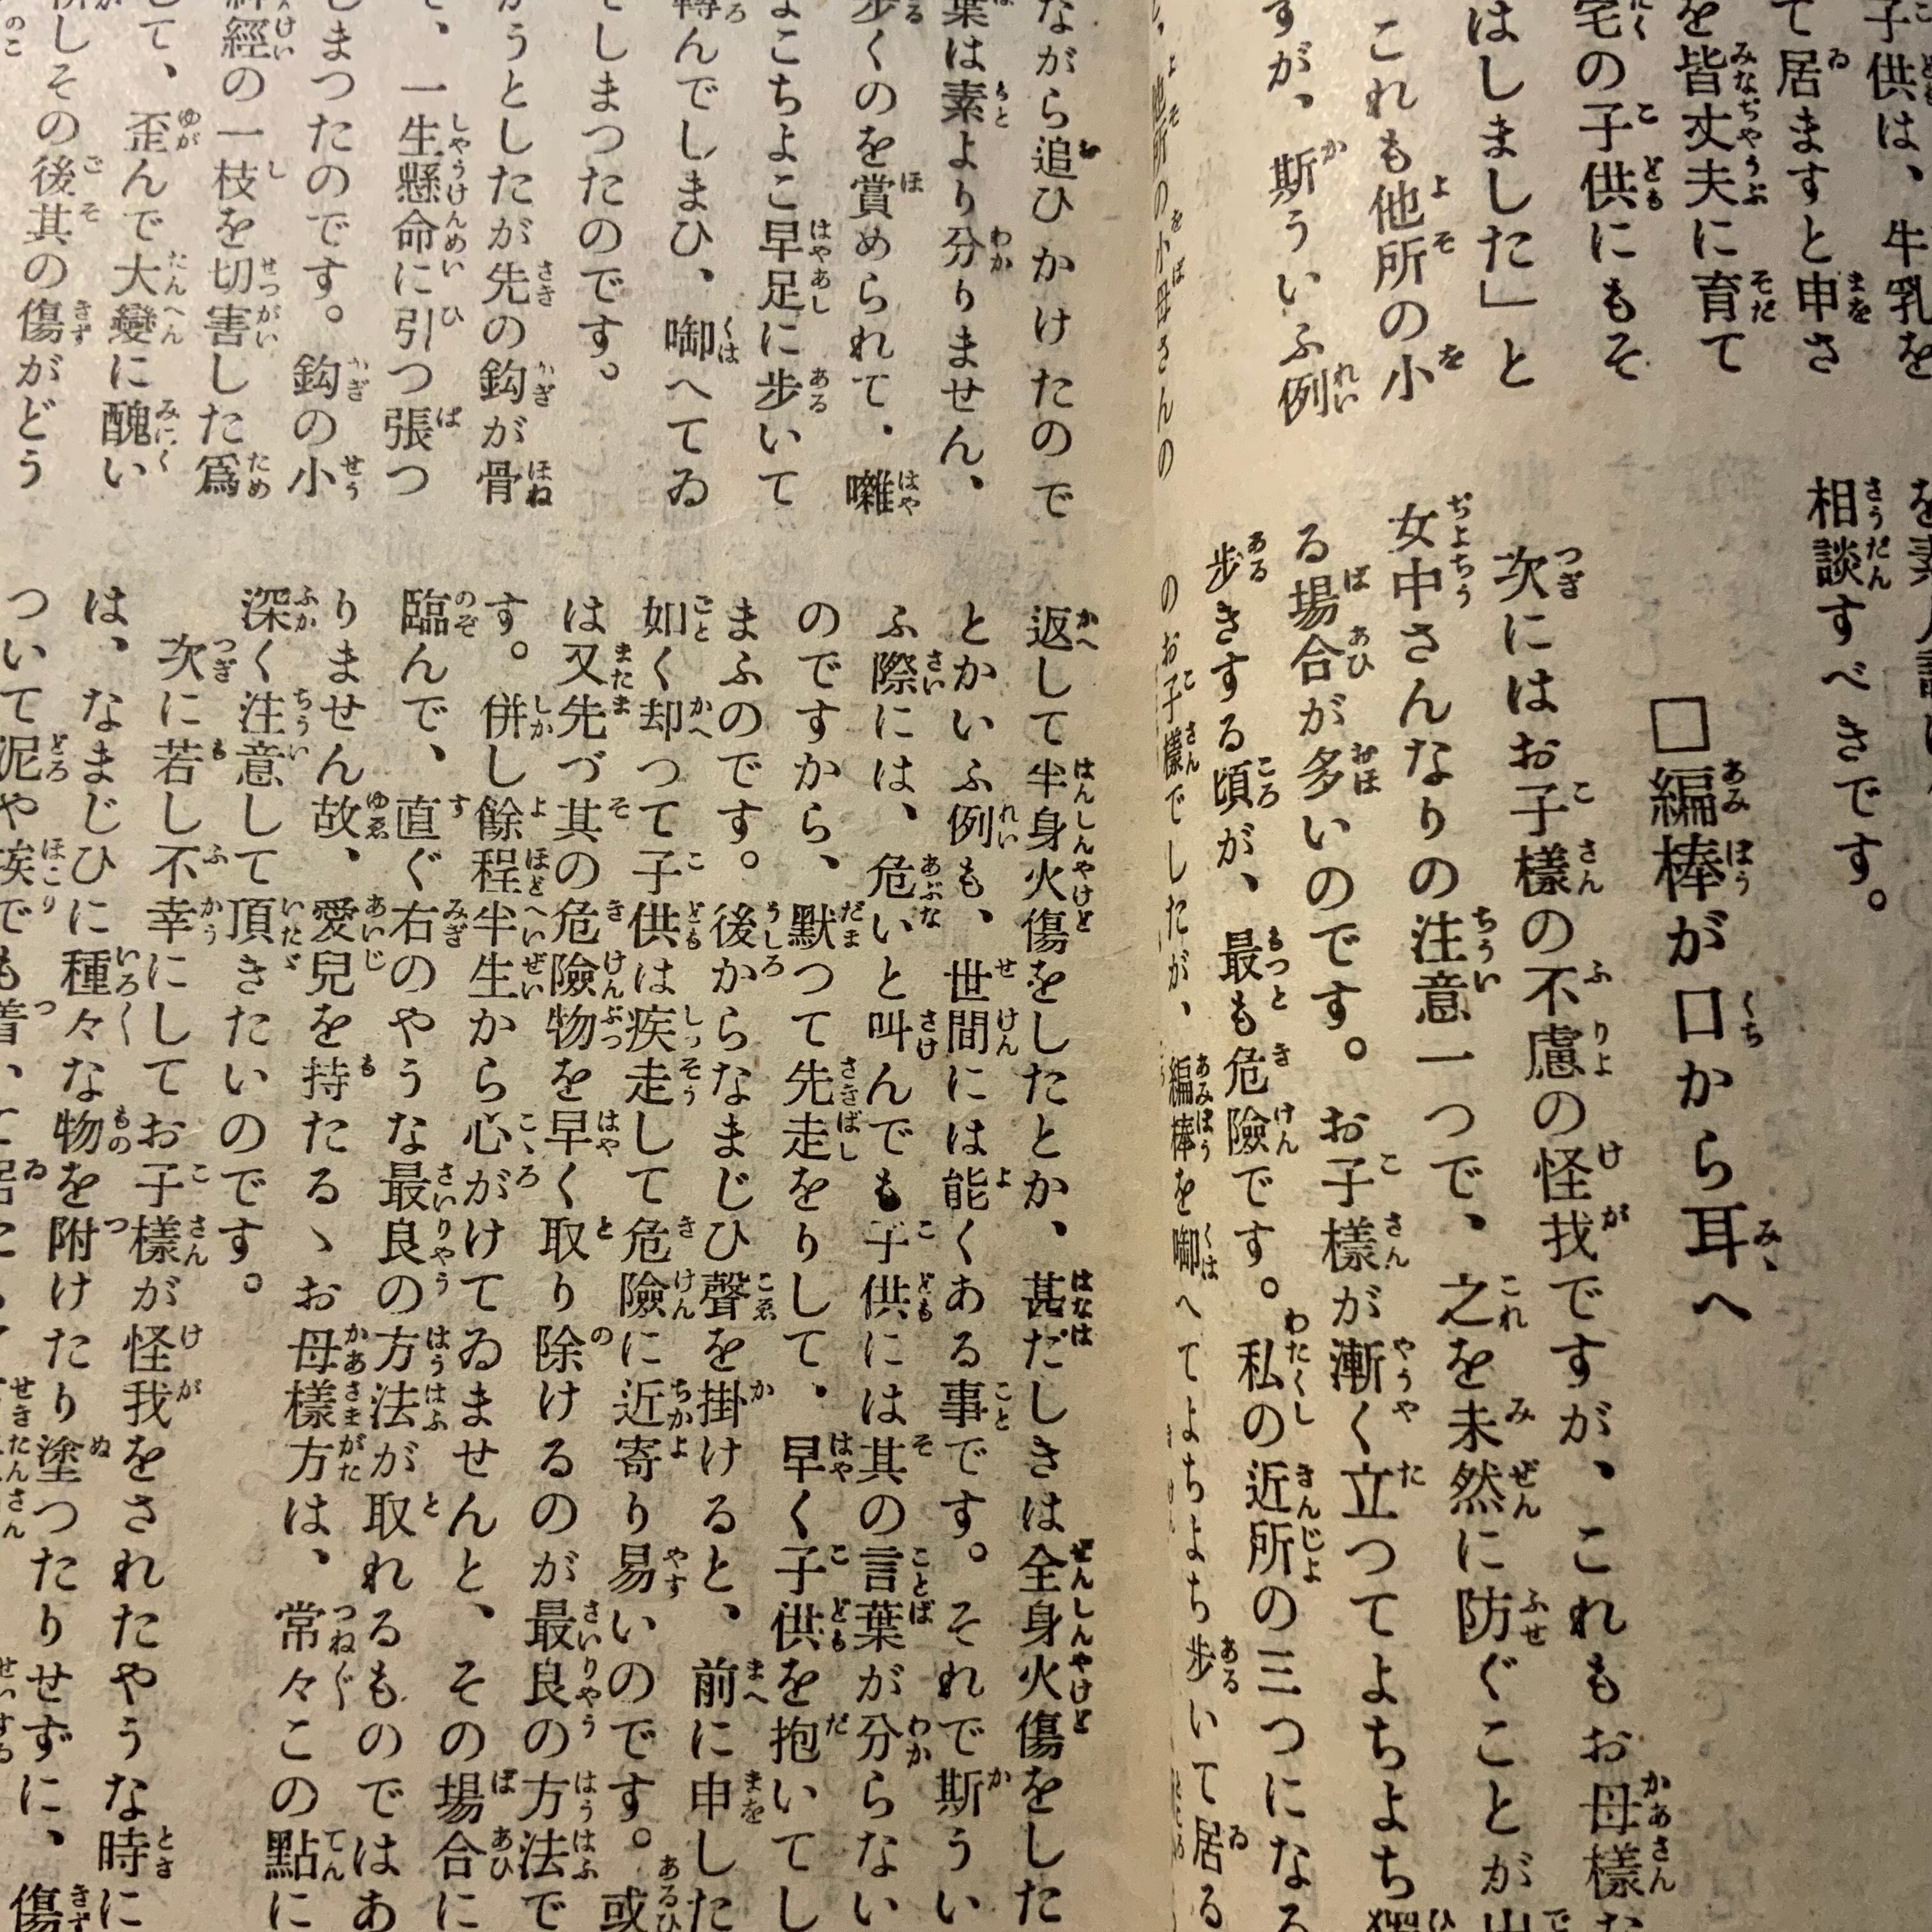 子供は、牛乳を
て居ますと申さ
を皆丈夫に育て
宅の子供にもそ
はしました」と
これも他所の小
すが、斯ういふ例
他所の小母さんの
相談すべきです。
□編棒が口から耳へ
次にはお子樣の不慮の怪我ですが、これもお母樣
女中さんなりの注意一つで、之を未然に防ぐことが出
る場合が多いのです。お子樣が漸く立つてよちよち獨
步きする頃が、最も危險です。私の近所の三つになる
のお子樣でしたが、編棒を啣へてよちよち步いて居る
ながら追ひかけたので
葉は素より分りません、
步くのを賞められて、囃
よこちよこ早足に步いて
轉んでしまひ、啣へてゐ
てしまつたのです。
かうとしたが先の鈎が骨
て、一生懸命に引つ張つ
しまつたのです。鈎の小
神經の一枝を切害した爲
して、歪んで大變に醜い
併しその後其の傷がどう
返して半身火傷をしたとか、甚だしきは全身火傷をした
とかいふ例も、世間には能くある事です。それで斯うい
ふ際には、危いと叫んでも子供には其の言葉が分らない
のですから、默つて先走をりして、早く子供を抱いてし
まふのです。後からなまじひ聲を掛けると、前に申した
如く却つて子供は疾走して危險に近寄り易いのです。或
は又先づ其の危險物を早く取り除けるのが最良の方法で
す。併し餘程半生から心がけてゐませんと、その場合に
臨んで、直ぐ右のやうな最良の方法が取れるものではあ
りません故、愛兒を持たるゝお母樣方は、常々この點に
深く注意して頂きたいのです。
次に若し不幸にしてお子樣が怪我をされたやうな時に
は、なまじひに種々な物を附けたり塗つたりせずに、傷
ついて泥や埃でも着いて居た